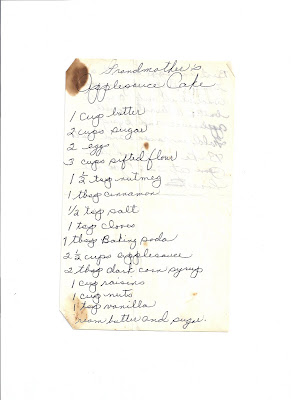 Grandmother's
Applesauce Cake
1 cup butter
2 cups sugar
2 eggs
3 cups sifted flour
1 ½ tsp nutmeg
1 tbsp cinnamon
½ tsp salt
1 tsp cloves
1 tbsp Baking soda
2 ½ cups applesauce
2 tbsp dark corn syrup
1 cup raisins
1 cup nuts
1 tsp vanilla
Cream butter and sugar.